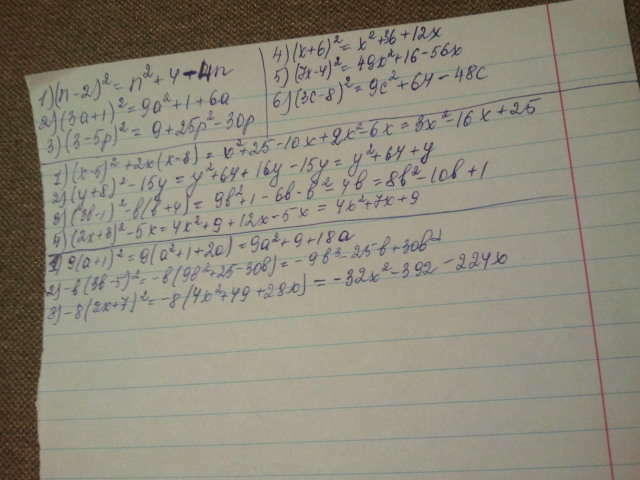 1) (n-2)² = n²+4-4n
2) (3a+1)² = 9a²+1+6a
3) (3-5p)² = 9+25p²-30p
4) (x+6)² = x²+36+12x
5) (7x-4)² = 49x²+16-56x
6) (3c-8)² = 9c²+64-48c
1) (x-5)²+2x(x-3) = x²+25-10x+2x²-6x = 3x²-16x+25
2) (y+8)²-15y = y²+64+16y-15y = y²+64+y
= 9b²+1-6b-b²-4b = 8b²-10b+1
4) (2x+3)²-5x = 4x²+9+12x-5x = 4x²+7x+9
1) 9(a+1)² = 9(a²+1+2a) = 9a²+9+18a
3) -8(2x+7)² = -8(4x²+49+28x) = -32x²-392-224x